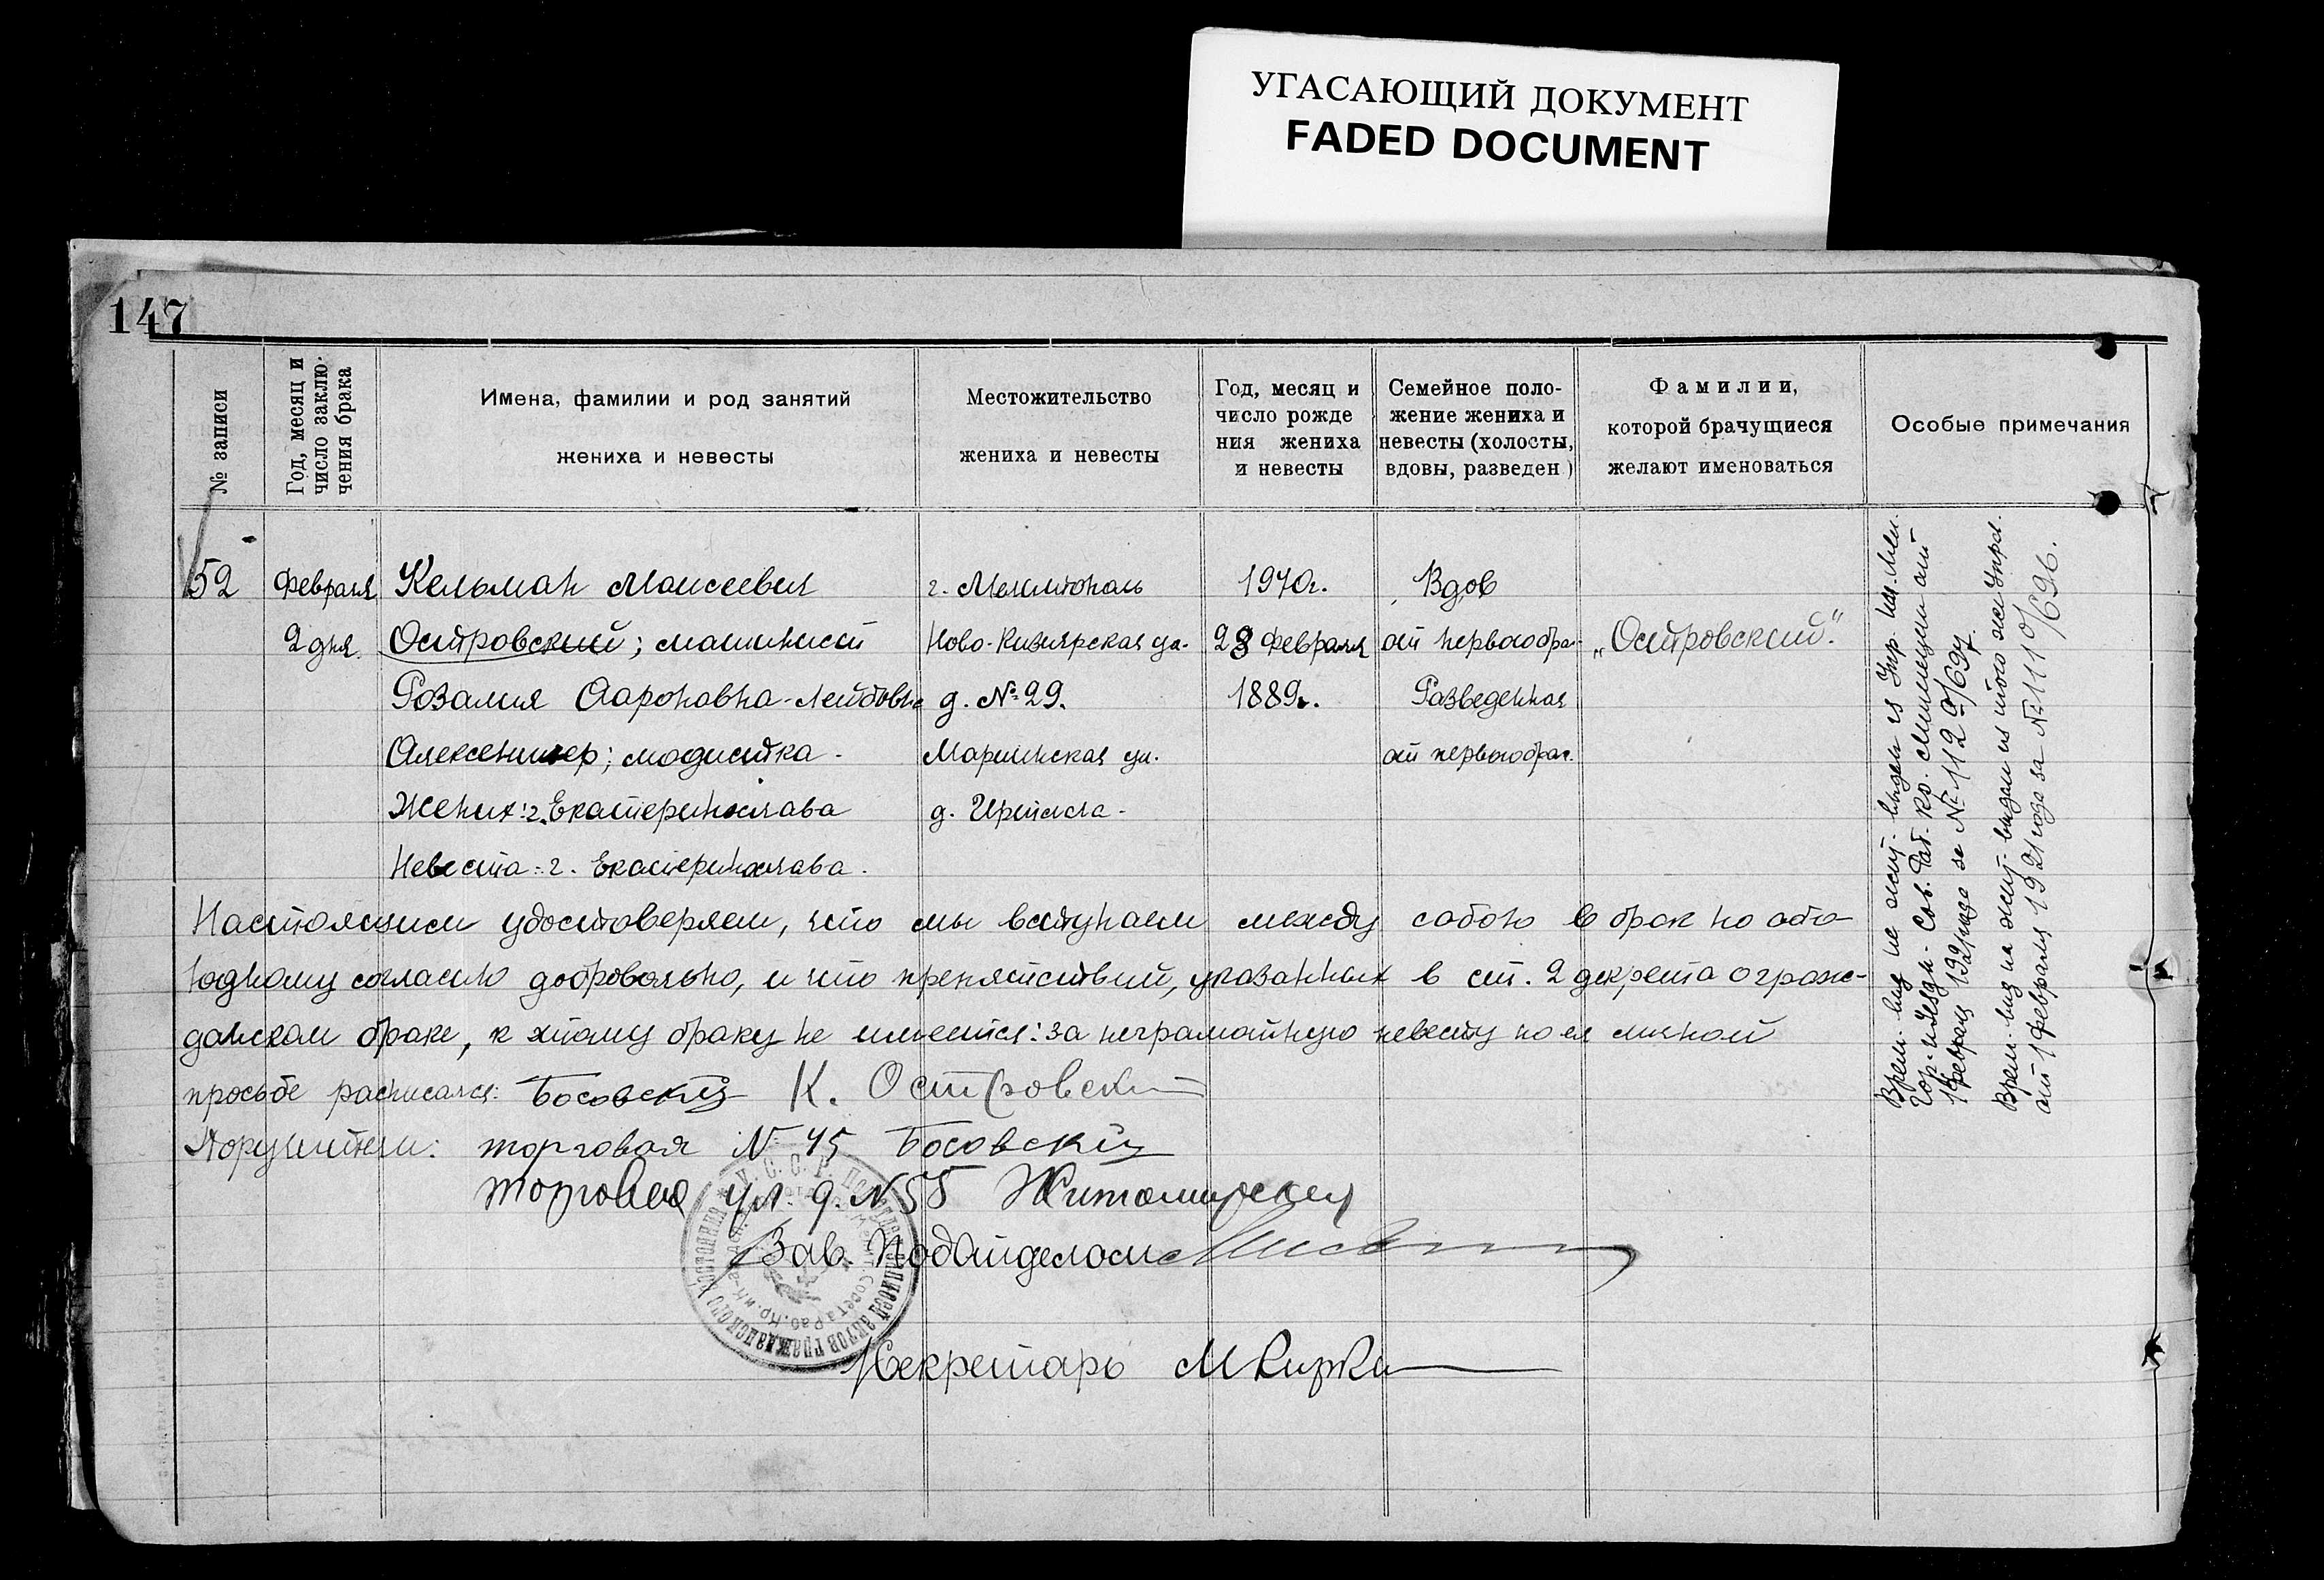 УГАСАЮЩИЙ ДОКУМЕНТ
FADED DOCUMENT
147
№ записи
Год, месяц и
число заклю-
чения брака
Имена, фамилии и род занятий
жениха и невесты
Местожительство
жениха и невесты
Год, месяц и
число рожде
ния жениха
и невесты
Семейное поло-
жение жениха и
невесты (холосты,
вдовы, разведен)
Фамилии,
которой брачущиеся
желают именоваться
Особые примечания
52
Февраля
2 дня.
Кельман Моисеевич
Островский; машинист
Розалия Аароновна-Лейбовна
Алексеницер; модистка -
Жених: г. Екатеринослава
Невеста:- г. Екатеринослава.
г. Мелитополь
Ново-Кизиярская ул.
д. № 29.
Мариинская ул.
д.
1970г.
23 Февраля
1889г.
Вдов
от первого бра-
Разведенная
от первого брак.
„Островский."
Врем. вид на жит. выдан из Упр. Нач. Мел.
Гор. и Уезд. Сов. Раб. Ко. Милиции от
1 Февраля 1921 года за № 1129/697.
Врем. вид на жит. выдан из того же Упра.
от 1 Февраля 1921 года за № 1110/696.
Настоящим удостоверяем, что мы вступаем между собою в брак по обо-
юдному согласию добровольно, и что препятствий, указанных в ст. 2 декрета о граж-
данском браке, к этому браку не имеется: за неграмотную невесту по ея личной
просьбе расписался: Босовский К. Островский
Поручители: торговая № 45 Босовский
торговая ул. д. N 55 Житомирский
Зав. Подотделом
Секретарь